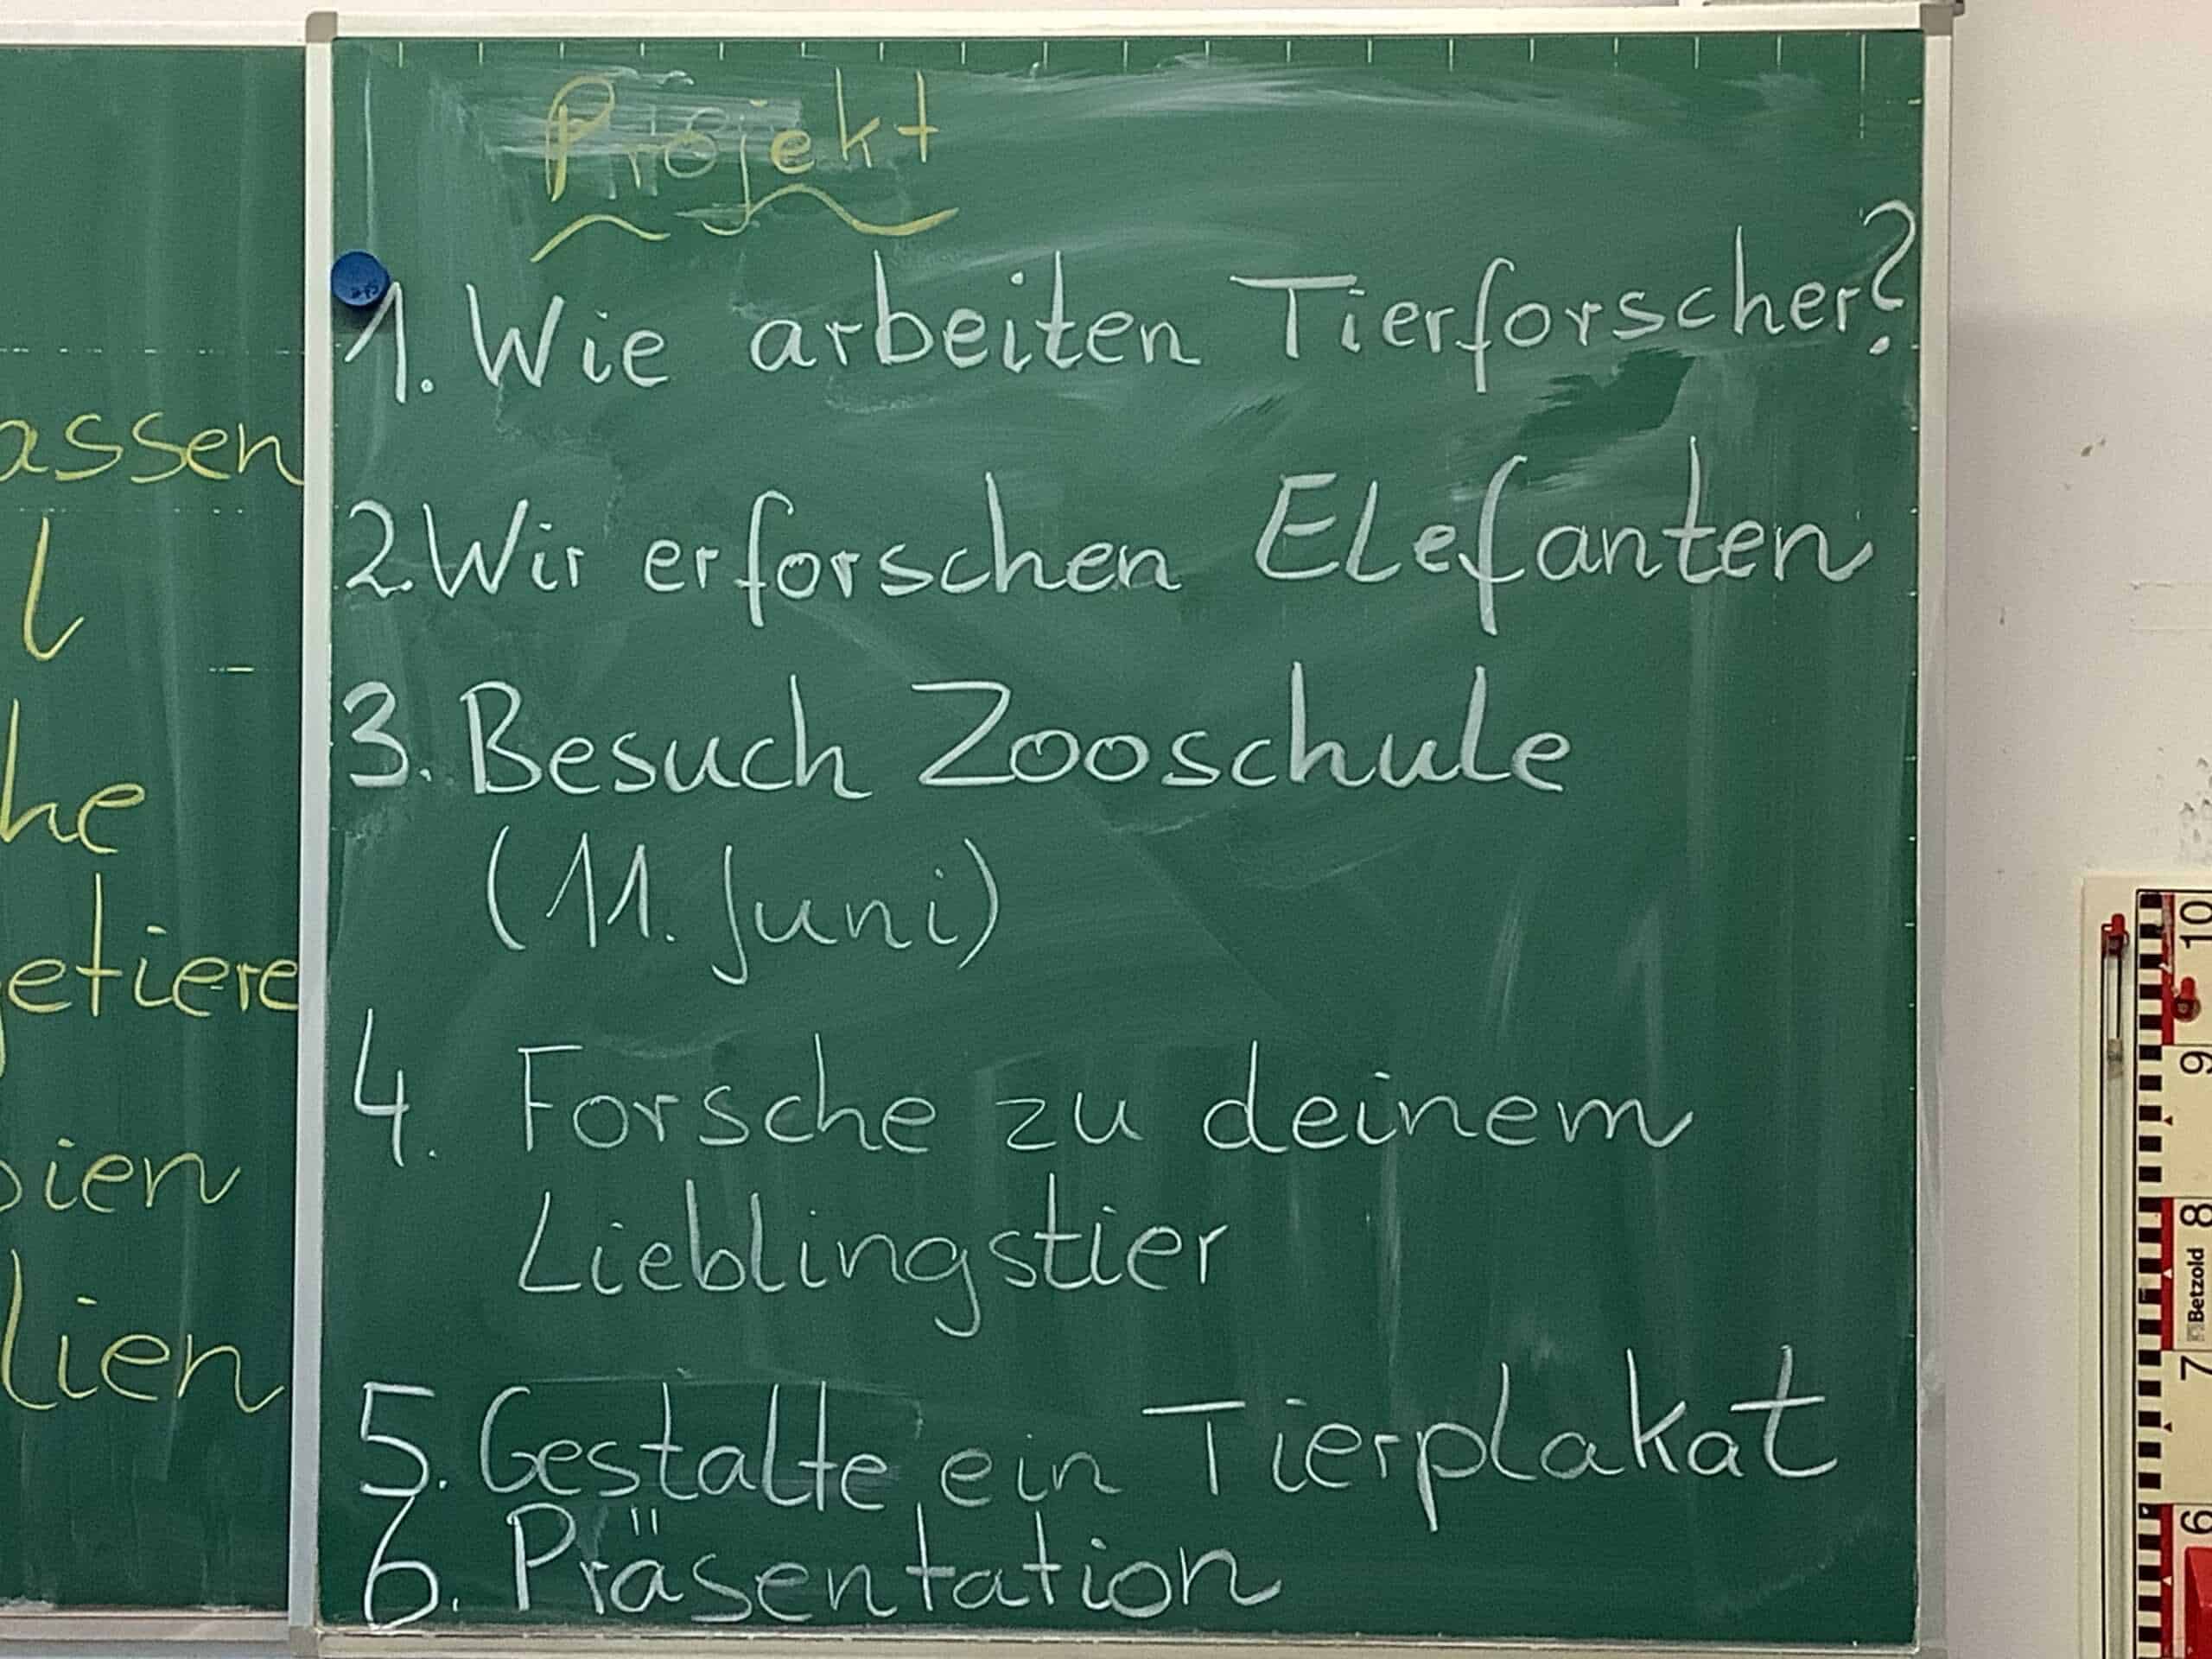 Projekt
1. Wie arbeiten Tierforscher?
2. Wir erforschen Elefanten
3. Besuch Zooschule
(11. Juni)
4. Forsche zu deinem
Lieblingstier
5. Gestalte ein Tierplakat
6. Präsentation
assen
l
he
etiere
ien
lien
10
9
8
Betzold
7
6